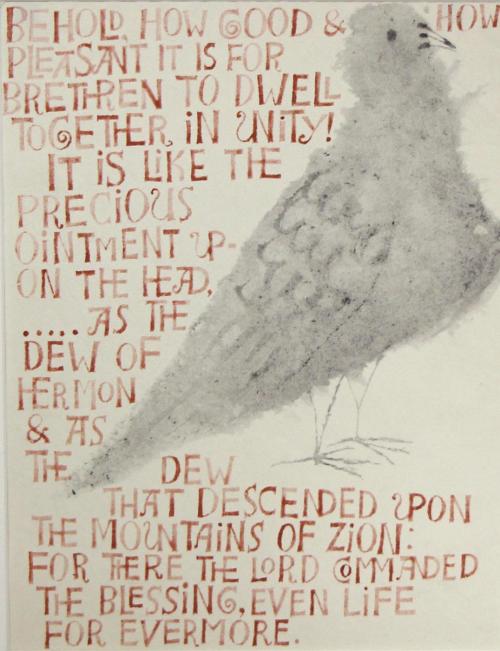 BEHOLD, HOW GOOD & HOW
PLEASANT IT IS FOR
BRETHREN TO DWELL
TOGETHER IN UNITY!
IT IS LIKE THE
PRECIOUS
OINTMENT UP-
ON THE HEAD,
..... AS THE
DEW OF
HERMON
& AS
THE DEW
THAT DESCENDED UPON
THE MOUNTAINS OF ZION:
FOR THERE THE LORD COMMANDED
THE BLESSING, EVEN LIFE
FOR EVERMORE.